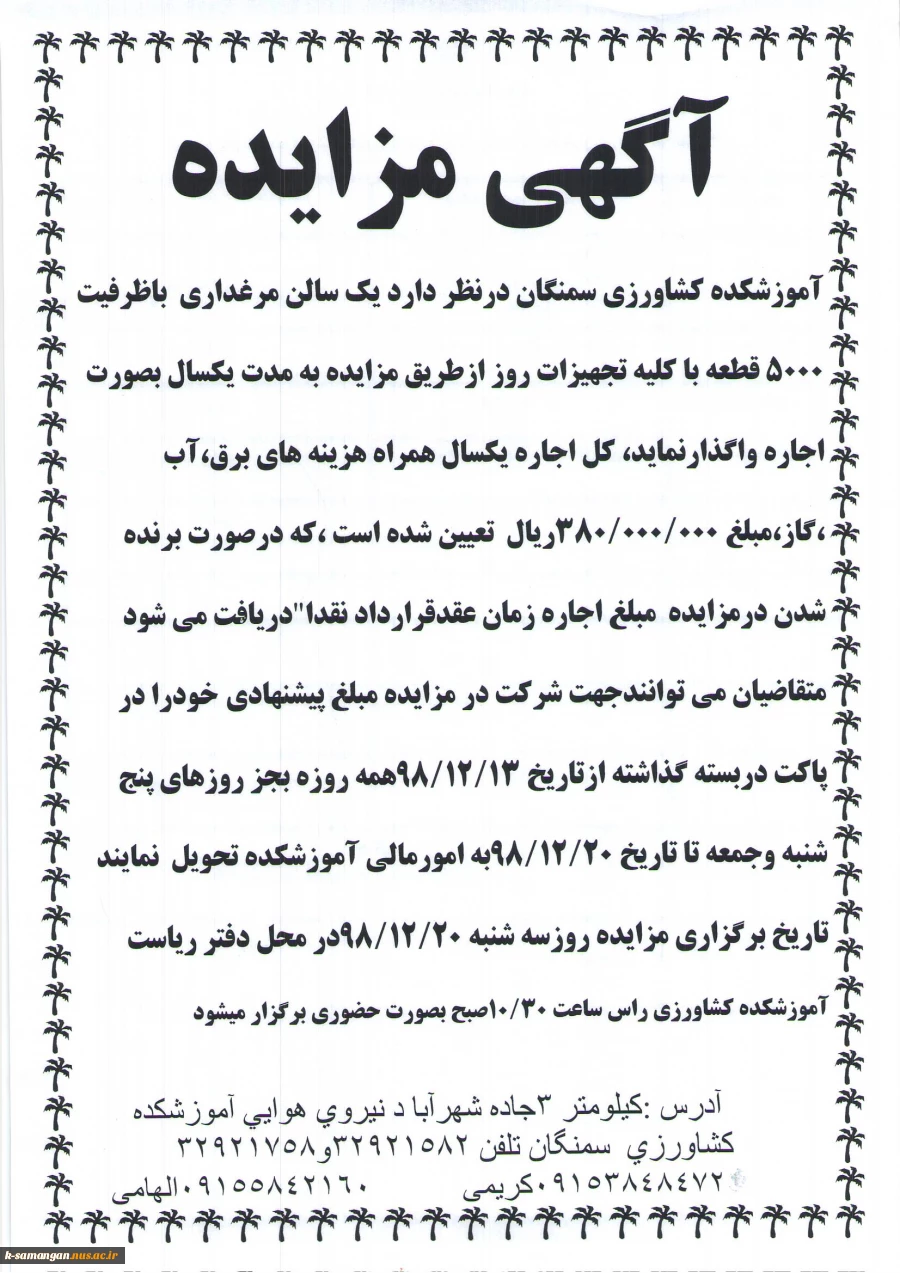 آگهی مزایده
آموزشکده کشاورزی سمنگان درنظر دارد یک سالن مرغداری باظرفیت
۵۰۰۰ قطعه با کلیه تجهیزات روز ازطریق مزایده به مدت یکسال بصورت
اجاره واگذارنماید، کل اجاره یکسال همراه هزینه های برق،آب
،گاز،مبلغ ۳۸۰/۰۰۰/۰۰۰ریال تعیین شده است ،که درصورت برنده
شدن درمزایده مبلغ اجاره زمان عقدقرارداد نقدا"دریافت می شود
متقاضیان می توانندجهت شرکت در مزایده مبلغ پیشنهادی خودرا در
پاکت دربسته گذاشته ازتاریخ ۹۸/۱۲/۱۳همه روزه بجز روزهای پنج
شنبه وجمعه تا تاریخ ۹۸/۱۲/۲۰به امورمالی آموزشکده تحویل نمایند
تاریخ برگزاری مزایده روزسه شنبه ۹۸/۱۲/۲۰در محل دفتر ریاست
آموزشکده کشاورزی راس ساعت ۱۰/۳۰صبح بصورت حضوری برگزار میشود
آدرس :کیلومتر ۳جاده شهرآبا د نيروي هوايي آموزشکده
کشاورزي سمنگان تلفن ۳۲۹۲۱۵۸۲و۳۲۹۲۱۷۵۸
۰۹۱۵۳۸۴۸۴۷۲کریمی ۰۹۱۵۵۸۴۲۱۶۰الهامی
k-samangan.nus.ac.ir